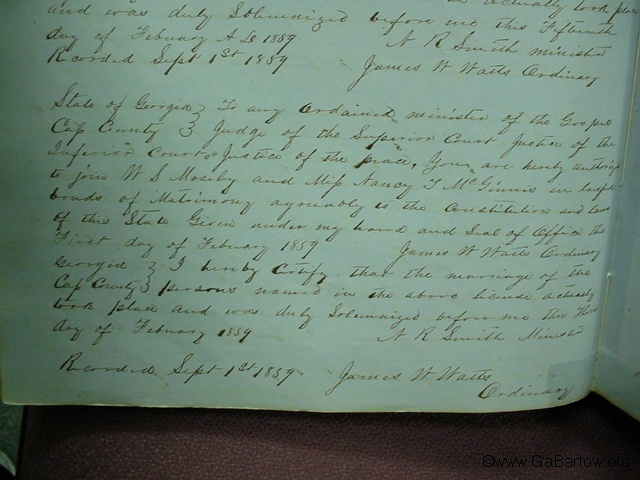 actually took place
and was duly Solemnized before me this Fifteenth
day of February A D 1859 N R Smith minister
Recorded Sept 1st 1859 James W Watts Ordinary
State of Georgia } To any Ordained minister of the Gospel
Cass County } Judge of the Superior Court Justice of the
Inferior Court or Justice of the peace, You are hereby authorize
to join W S Moseby and Miss Nancy T McGinnis in
bonds of Matrimony agreeably to the Constitution and laws
of this State Given under my hand and Seal of Office this
First day of February 1859 James W Watts Ordinary
Georgia } I hereby Certify that the marriage of the
Cass County } persons named in the above license actually
took place and was duly Solemnized before me this
day of February 1859 N R Smith Minister
Recorded Sept 1st 1859 James W Watts
Ordinary
©www.GaBartow.org